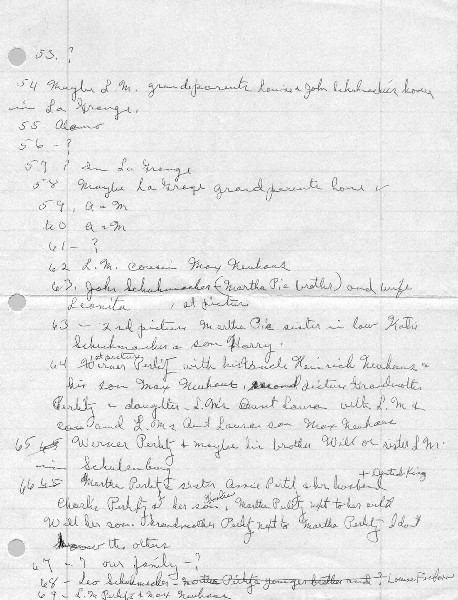 53. ?
54 Maybe L.M. grandparents Louise & John Schuhmacher's home
in La Grange.
55 Alamo
56 - ?
57 ? in La Grange
58 Maybe La Grage grandparents home
59, a = m
60 a = m
61 - ?
62 L.M. cousin Max Neuhaus
63, John Schuhmacher (Martha Pic brother) and wife
Leonita, at picture
63 - 2nd picture Martha Pic sister in law Katie
Schuhmacher & son Harry.
64 Werner Perlitz with his uncle Heinrich Neuhaus &
his son Max Neuhaus, second picture Grandmother
Perlitz & daughter - L.M's Aunt Laura with L.M &
and L.M's Aunt Laura son Max Neuhaus
65 Werner Perlitz & maybe his brother Will or sister L.M.
in Schulenburg
66 Martha Perlitz sister Annie Pertl & her husband + Dertick King
Charlie Perlitz & her son, Martha Perlitz next to her
Will her son. Grandmother Perlitz next to Martha Perlitz I don't
know the others
67 - ? our family - ?
68 - Leo Schuhmacher - Martha Perlitz's younger brother and ? Louise
69 - L.M Perlitz & Max Neuhaus